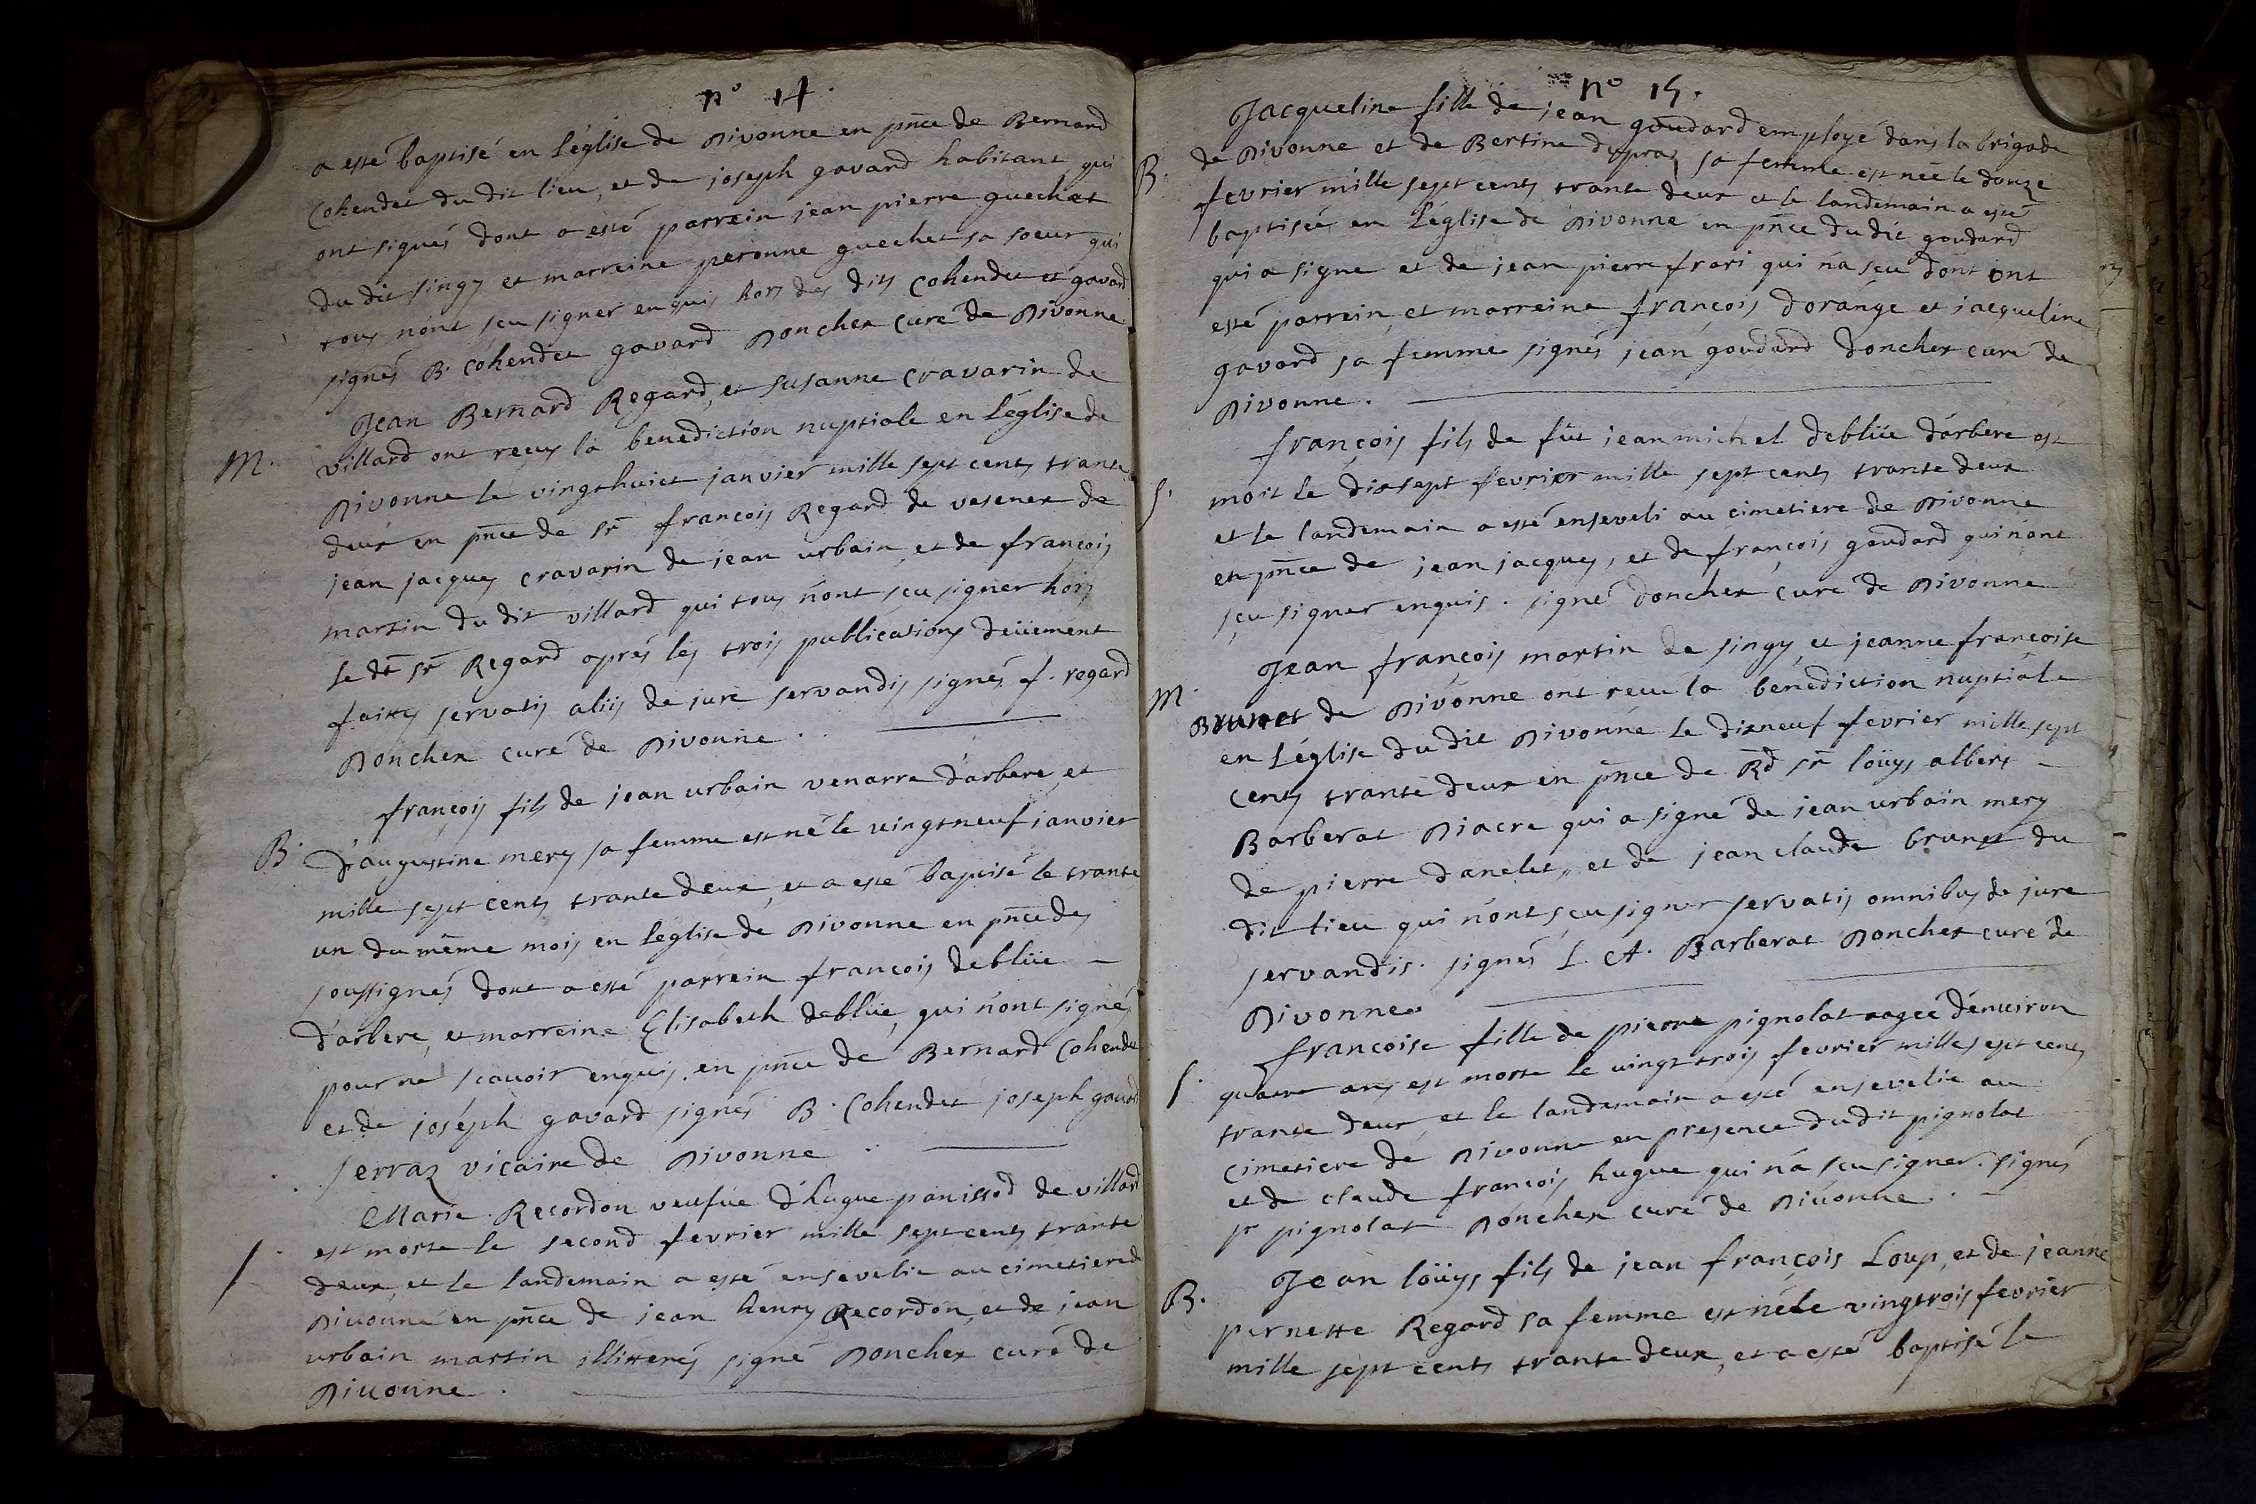 n° 14.
a esté baptisé en l'église de Divonne en pnce de Bernard
Cohendet du dit lieu, et de joseph gavard habitant qui
ont signés dont a esté parrein jean pierre guechet
du dit singy et marreine peronne guechet sa soeur qui
tous n'ont sçu signer enquis hors des dits Cohendet et gavard
signés B. Cohendet gavard Donchex curé de Divonne
M.
Jean Bernard Regard, et susanne Cravarin de
villard ont reçus la benediction nuptiale en l'église de
Divonne le vingthuict janvier mille sept cents trante
deux en pnce de sr françois Regard de vesenex de
jean jacques cravarin de jean urbain et de françois
martin du dit villard qui tous n'ont sçu signer hors
le dt sr Regard aprés les trois publications deüement
faittes servatis aliis de jure servandis signés f. regard
Donchex curé de Divonne.
B.
françois fils de jean urbain venarre d'arbere, et
d'augustine mery sa femme est né le vingtneuf janvier
mille sept cents trante deux, et a esté baptisé le trante
un du même mois en l'église de Divonne en pnce des
soussignés dont a esté parrein françois deblüe -
d'arbere, et marreine Elisabeth deblüe, qui n'ont signé
pour ne scavoir enquis. en pnce de Bernard Cohendet
et de joséph gavard signés B. Cohendet joseph gavard
serraz vicaire de Divonne.
S.
Marie Recordon veufue d'hugue panissod de villard
est morte le second fevrier mille sept cents trante
deux, et le landemain a esté ensevelie au cimetiere de
Divonne en pnce de jean henry Recordon, et de jean
urbain martin illitterés signé Donchex curé de
Divonne.
n° 15.
B.
Jacqueline fille de jean goudard employé dans la brigade
de Divonne et de Bertine dupraz sa femme est née le douze
fevrier mille sept cents trante deux et le landemain a esté
baptisée en l'église de Divonne en pnce du dit goudard
qui a signe et de jean pierre frari qui n'a sçu dont ont
esté parrein, et marreine françois d'orange et jacqueline
gavard sa femme signés jean goudard Donchex curé de
Divonne.
S.
françois fils de fût jean michel deblüe d'arbere est
mort le dixsept fevrier mille sept cents trante deux
et le landemain a esté enseveli au cimetiere de Divonne
en pnce de jean jacques, et de françois goudard qui n'ont
sçu signer enquis. signé Donchex curé de Divonne
M.
Jean françois martin de singy, et jeanne françoise
Brunet de Divonne ont recu la benediction nuptiale
en l'église du dit Divonne le dixneuf fevrier mille sept
cents trante deux en pnce de Rd sr loüys albert -
Barberat Diacre qui a signé de jean urbain mery
de pierre danelet, et de jean claude brunet du
dit lieu qui n'ont sçu signer servatis omnibus de jure
servandis. signés L. A. Barberat Donchex curé de
Divonne
S.
françoise fille de pierre pignolat aagée d'environ
quatre ans est morte le vingt trois fevrier mille sept cents
trante deux, et le landemain a esté ensevelie au
cimetiere de Divonne en presence du dit pignolat
et de claude françois hugue qui n'a sçu signer. signés
pr pignolat Donchex curé de Divonne. -
B.
Jean loüys fils de jean françois Loup, et de jeanne
pernette Regard sa femme est né le vingtrois fevrier
mille sept cents trante deux, et a esté baptisé le